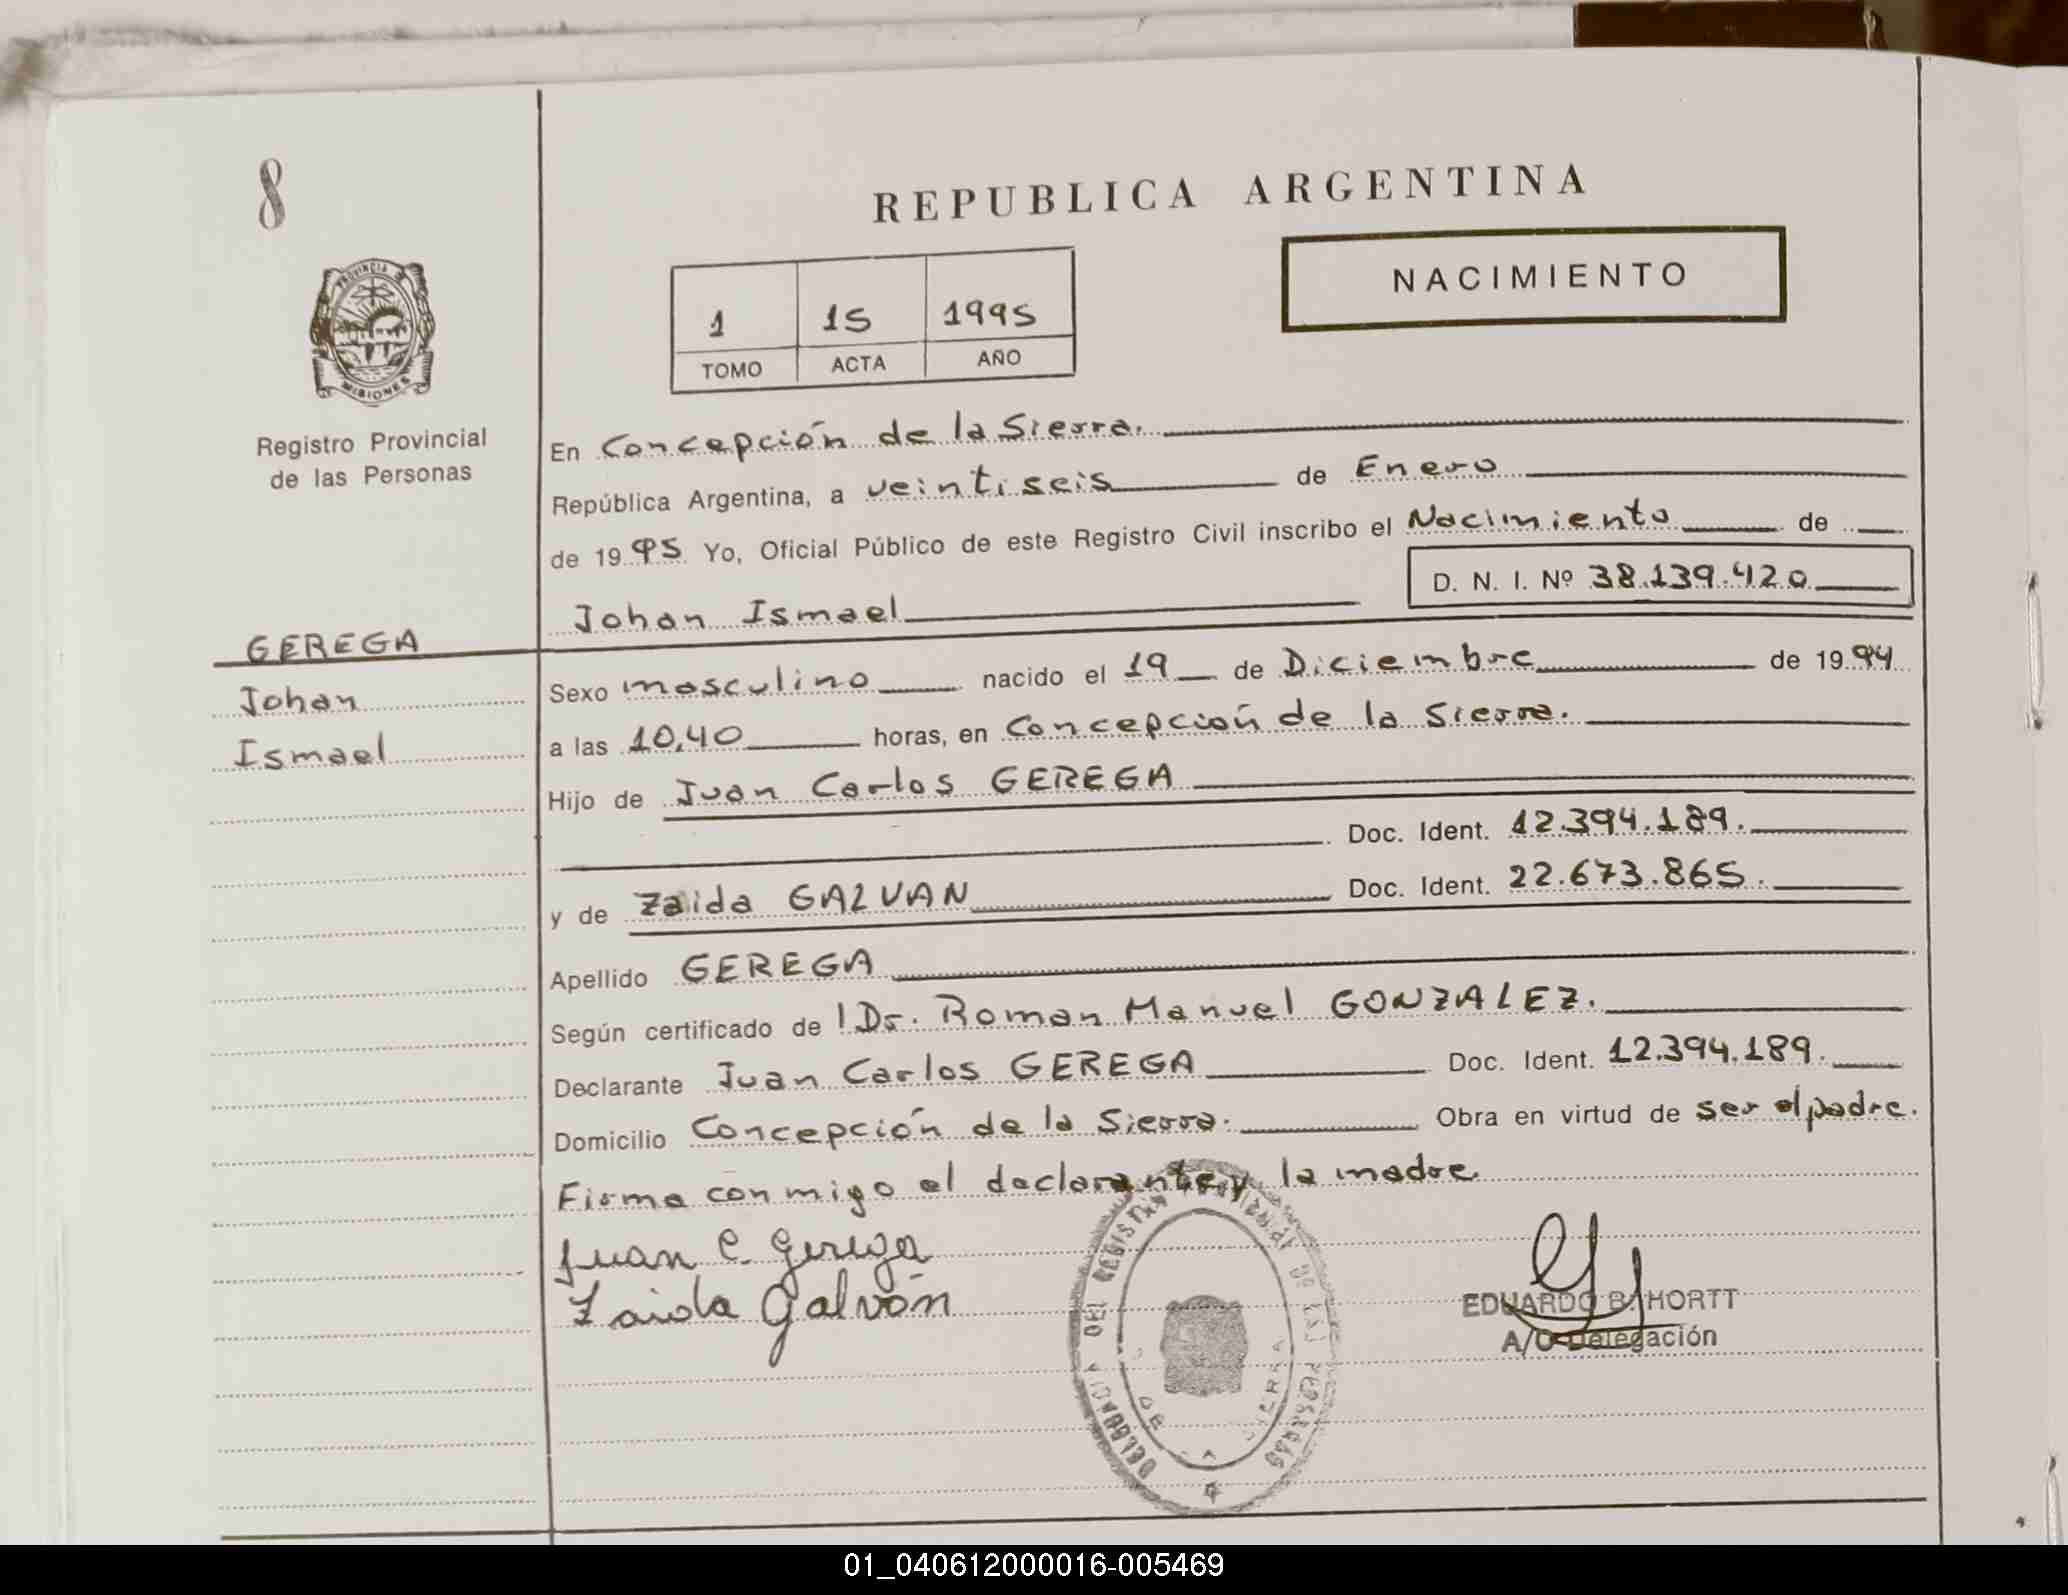 8
REPUBLICA ARGENTINA
NACIMIENTO
PROVINCIA DE
MISIONES
1 15 1995
TOMO ACTA AÑO
Registro Provincial
de las Personas
En Concepción de la Sierra.
República Argentina, a veintiseis de Enero
de 1995 Yo, Oficial Público de este Registro Civil inscribo el Nacimiento de
D. N. I. Nº 38.139.420
Johan Ismael
GEREGA
Johan
Ismael
Sexo masculino nacido el 19 de Diciembre de 1994
a las 10,40 horas, en Concepción de la Sierra.
Hijo de Juan Carlos GEREGA
Doc. Ident. 12.394.189.
y de Zaida GALVAN Doc. Ident. 22.673.865.
Apellido GEREGA
Según certificado de l Dr. Roman Manuel GONZALEZ.
Declarante Juan Carlos GEREGA Doc. Ident. 12.394.189.
Domicilio Concepción de la Sierra. Obra en virtud de ser el padre.
Firma conmigo el declarante y la madre
Juan C. Gerega
Zaida Galván
DELEGACIA DEL REGISTRO PROVINCIAL DE LAS PERSONAS
DE LA SIERRA
EDUARDO B. HORTT
A/C Delegación
01_040612000016-005469